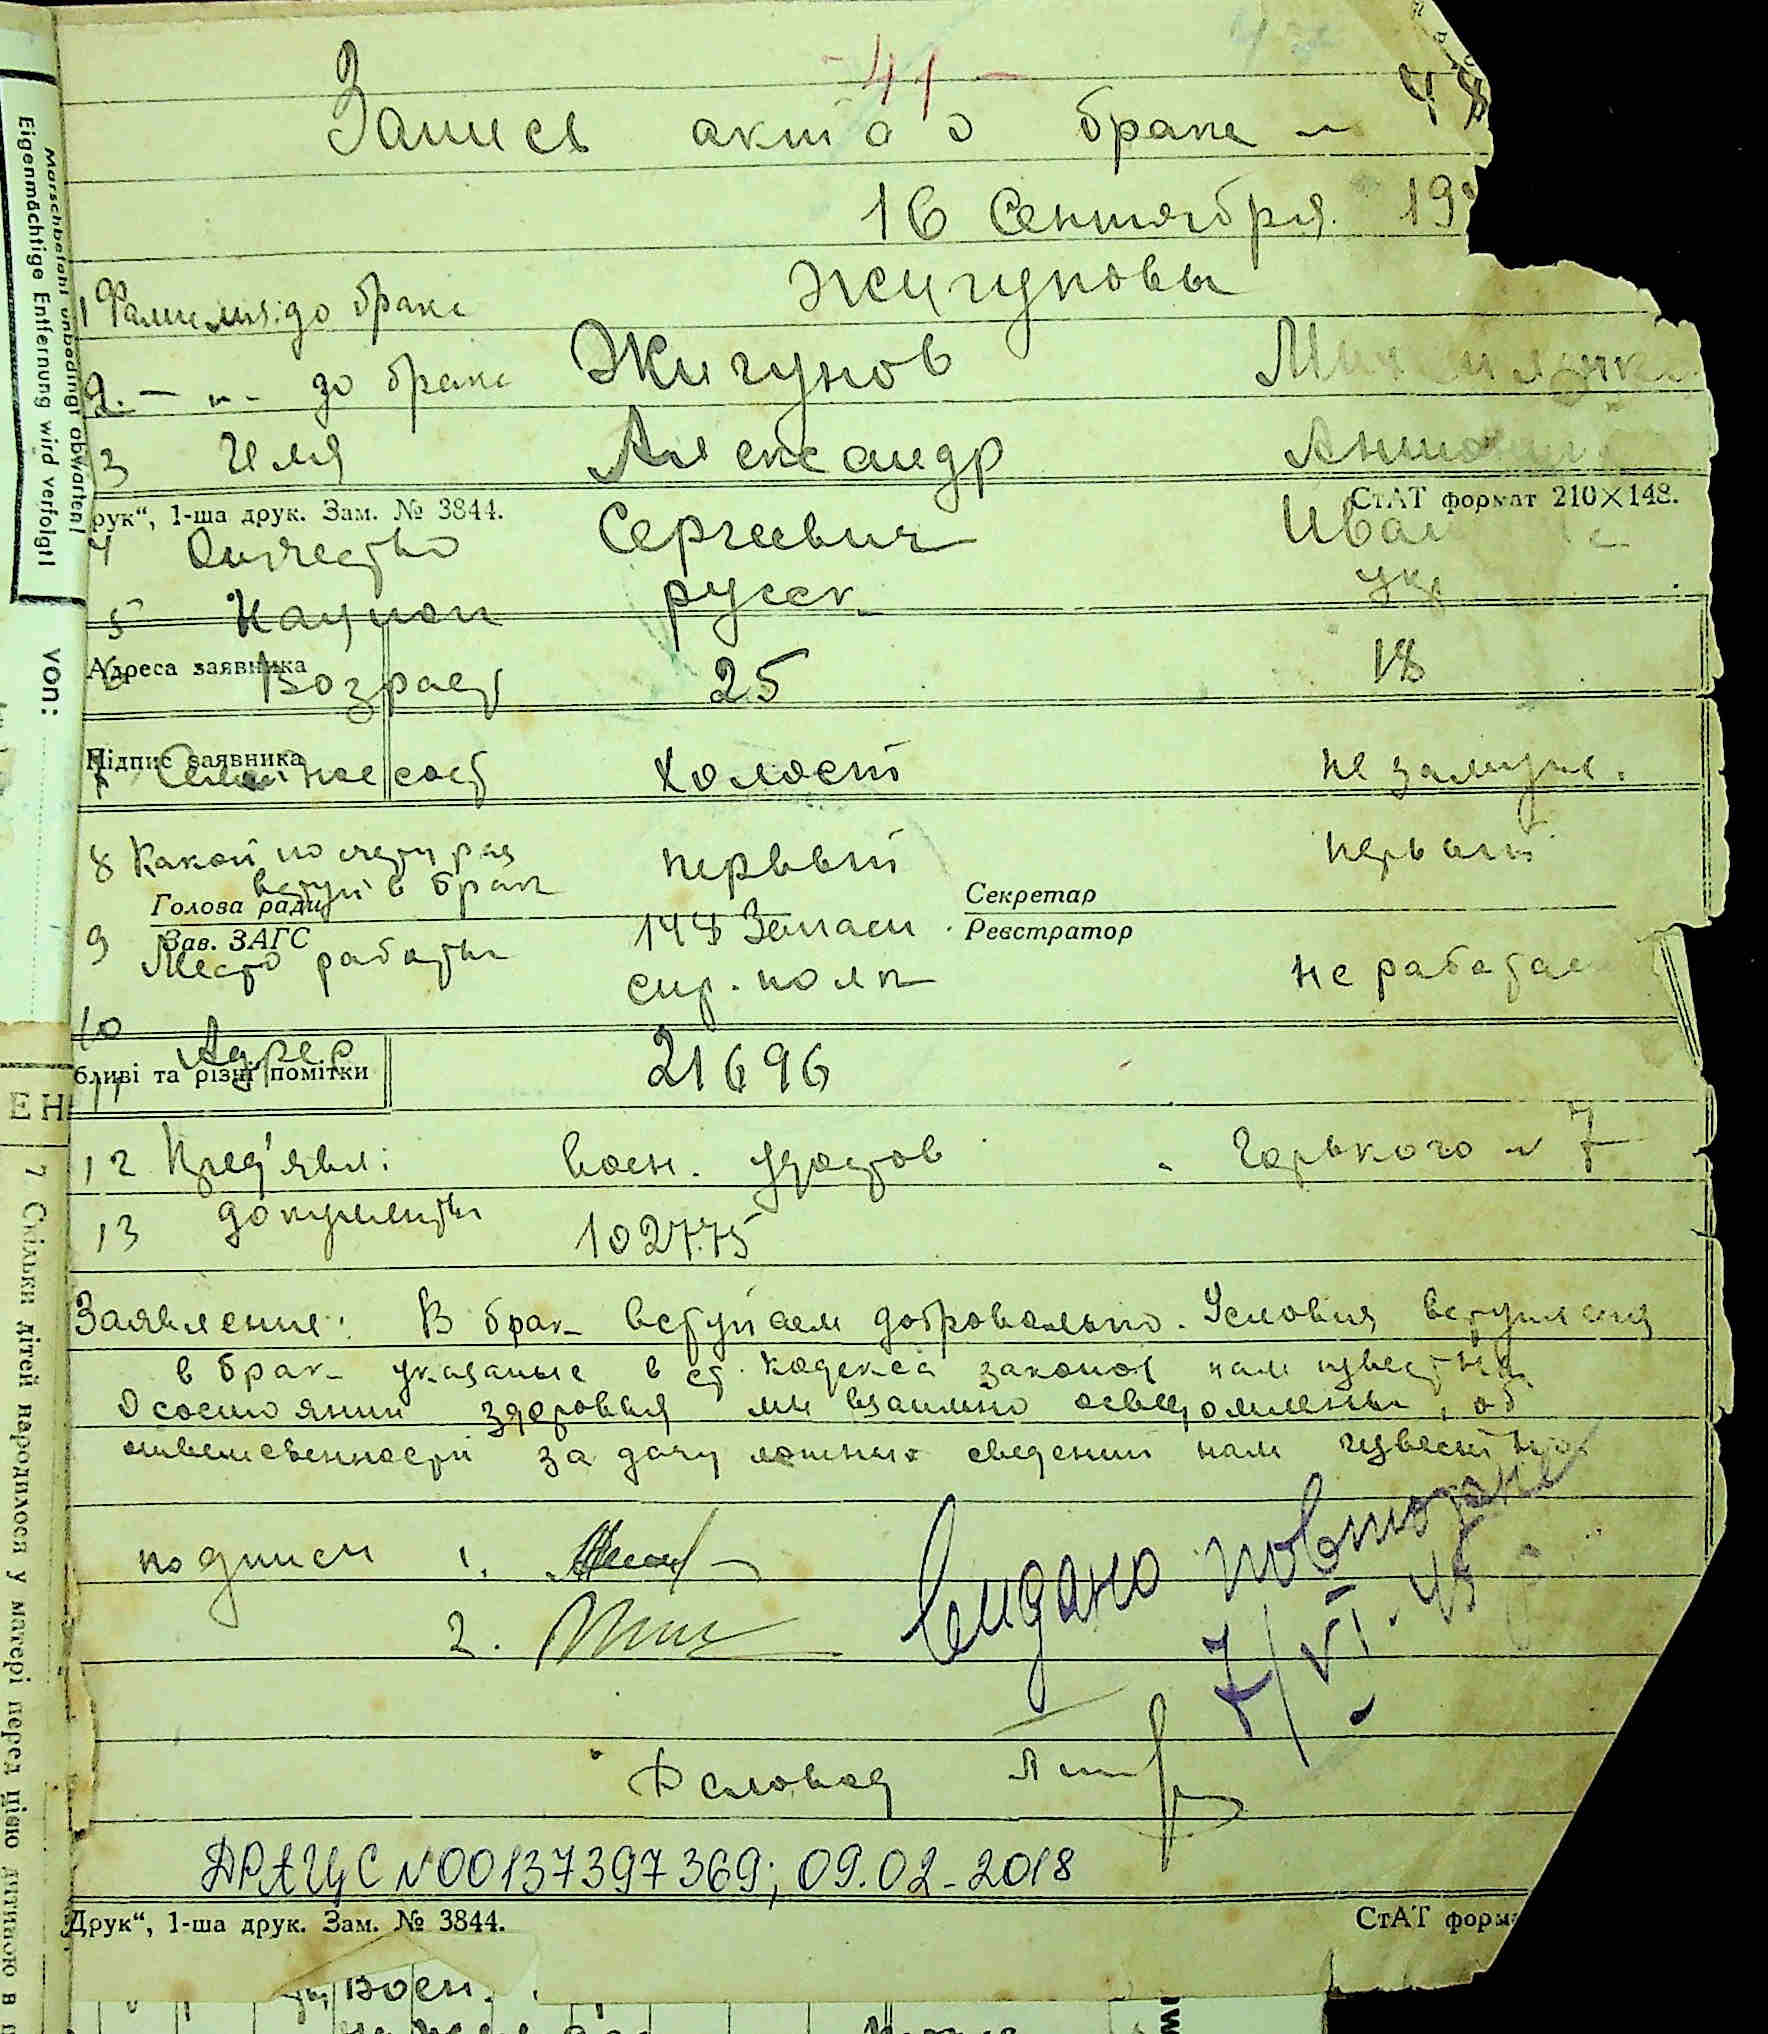 - 41 -
Запись акта о браке № 48
16 Сентября 19
1 Фамилия: до брака Жигуновы
2. — „ - до брака Жигунов
3 Имя Александр
Друк“, 1-ша друк. Зам. № 3844. СтАТ формат 210×148.
4 Отчество Сергеевич
5 Национ русск. укр
Адреса заявника
6 Возраст 25 18
Підпис заявника
7 Семейное сост холост не замужн.
8 Какой по счету раз первый первый
вступ в брак
Голова ради Секретар
Зав. ЗАГС Реєстратор
9 Место работы 148 Запасн. не работает
стр. полк
10 Адрес 21696
бливі та різні помітки
11
12 Пред'явл: воен. удостов Горького № 7
13 документы 102775
Заявление: В брак вступаем добровольно. Условия вступления
в брак указаные в ст. кодекса законов нам известны
О состоянии здоровья мы взаимно осведомлены, об
ответственности за дачу ложных сведений нам известно
подписи 1.
2.
Видано повторно
7/VI-45
Деловод
ДРАЦС №00137397369; 09.02-2018
Друк“, 1-ша друк. Зам. № 3844. СтАТ форма
воен.
Marschbefehl unbedingt abwarten!
Eigenmächtige Entfernung wird verfolgt!
von:
7 Скільки дітей народилося у матері перед цією дитиною